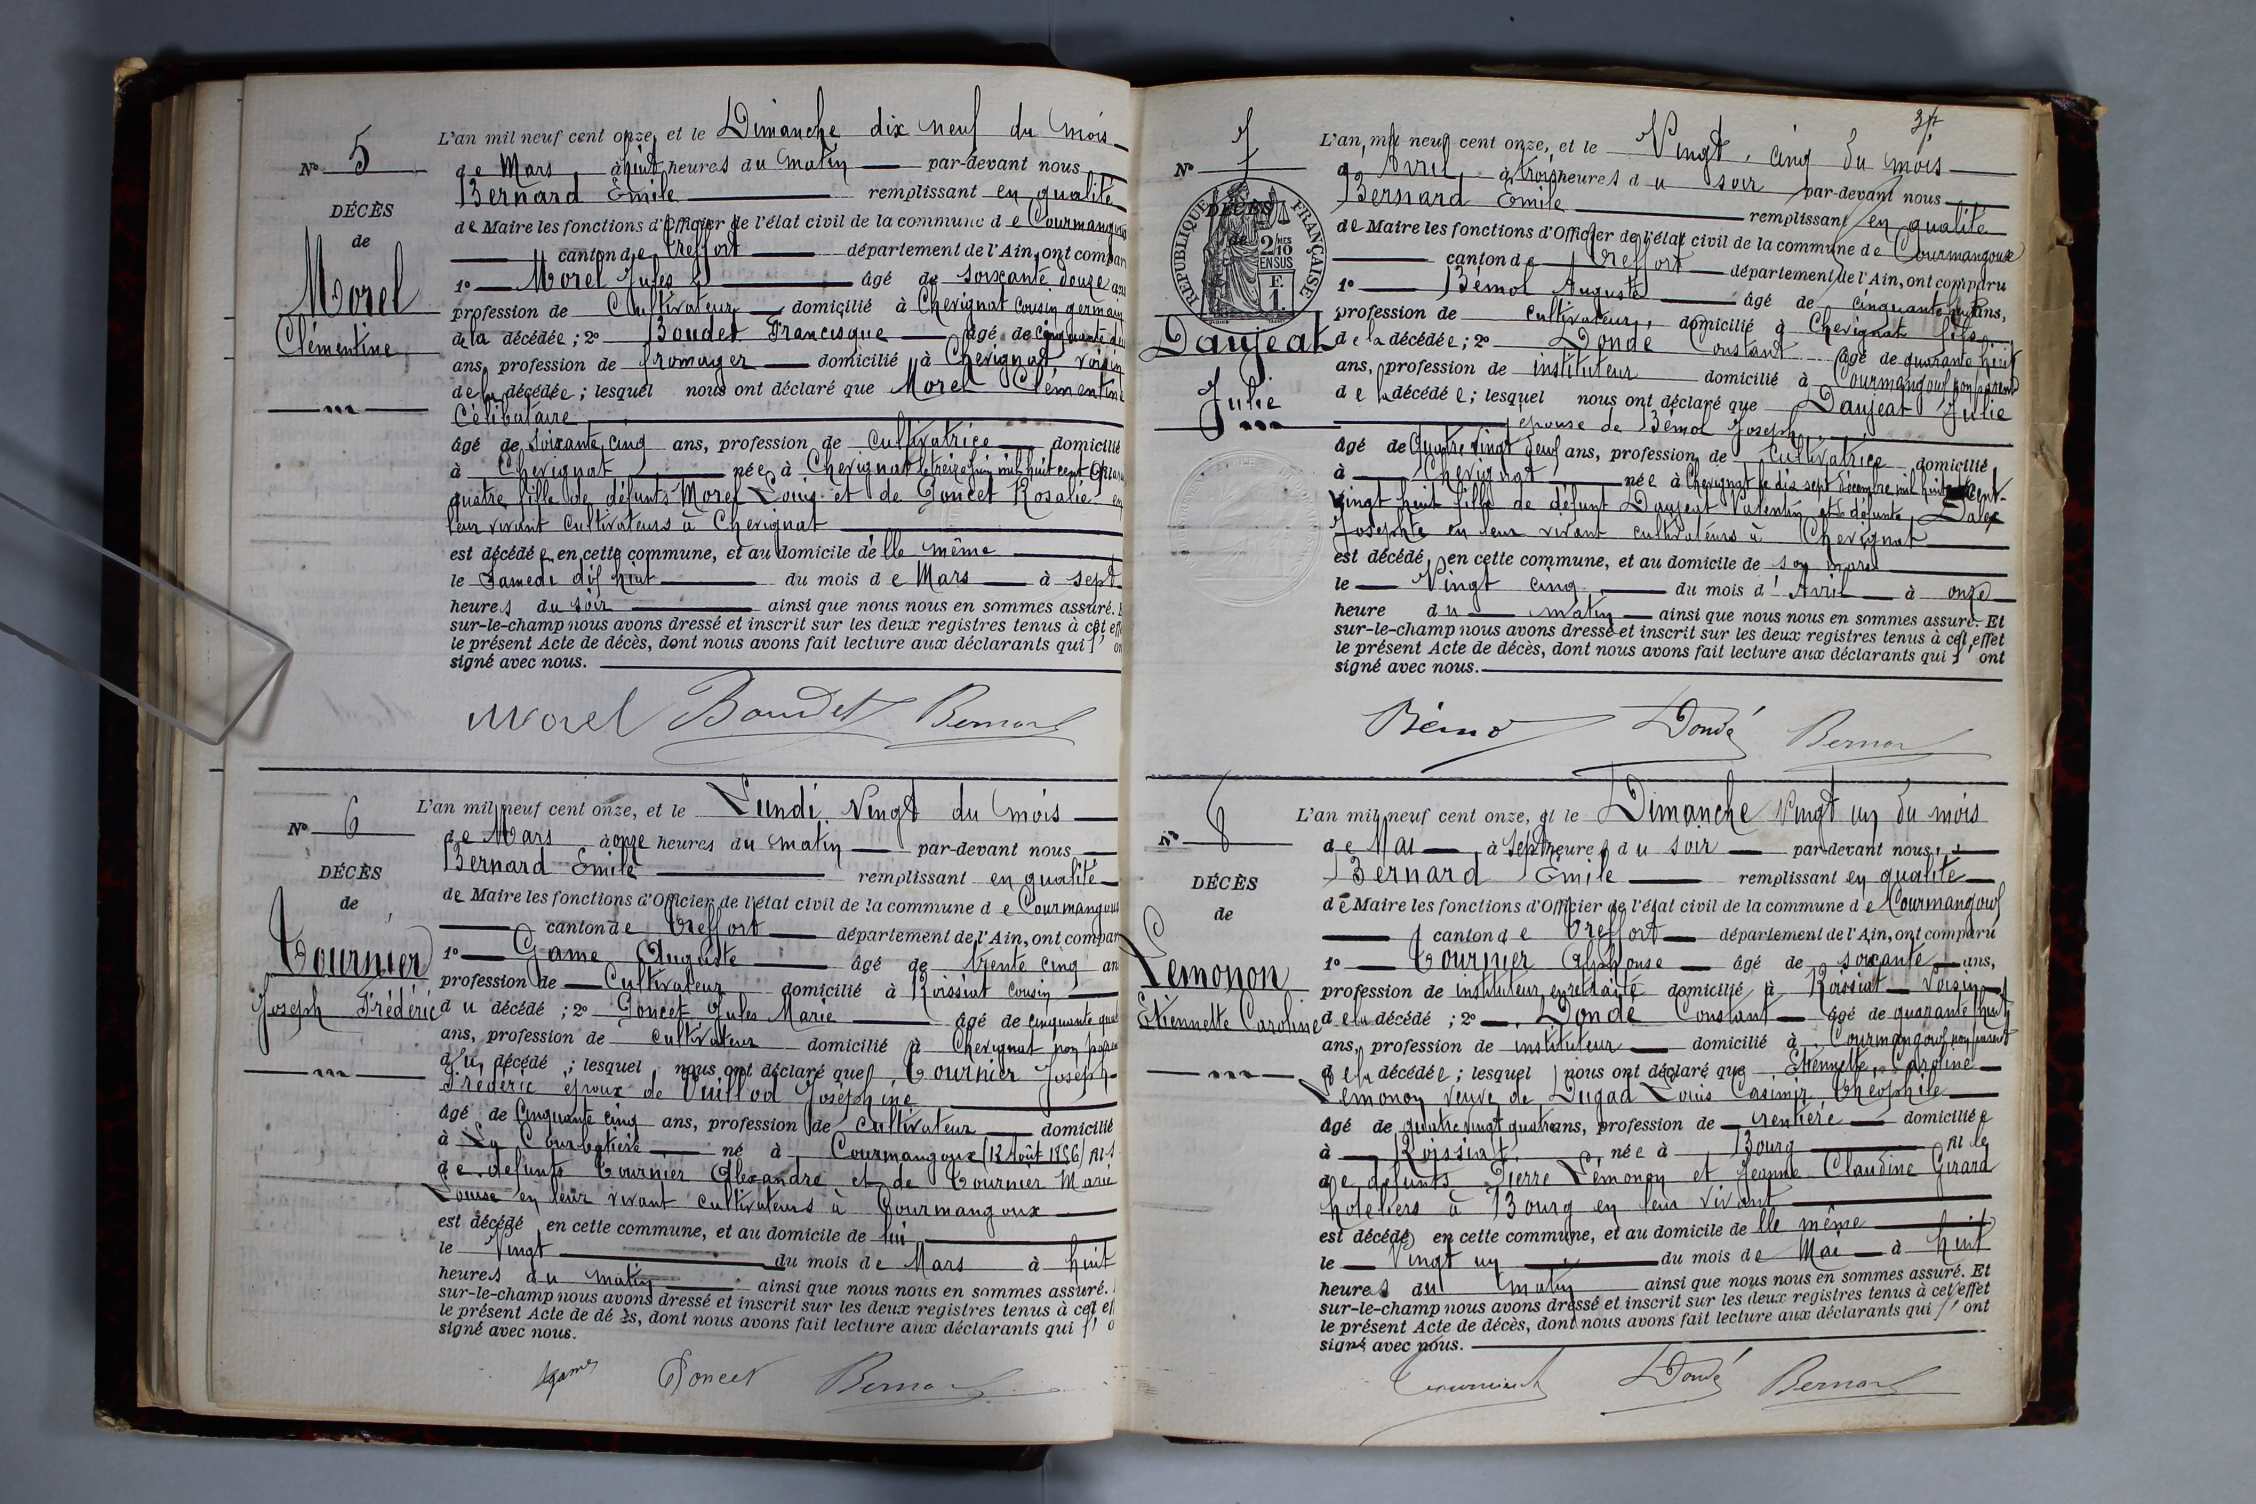 N° 5
DÉCÈS
de
Morel
Clémentine
L'an mil neuf cent onze, et le Dimanche dix neuf du mois
de Mars à huit heures du matin par-devant nous
Bernard Emile remplissant en qualité
de Maire les fonctions d'Officier de l'état civil de la commune de Courmangoux
canton de Treffort département de l'Ain, ont compar
1° Morel Jules âgé de soixante douze ans
profession de Cultivateur domicilié à Chevignat cousin germain
de la décédée ; 2° Boudet Francisque âgé de cinquante
ans, profession de fromager domicilié à Chevignat voisin
de la décédée ; lesquel nous ont déclaré que Morel Clémentine
Célibataire
âgé de soixante cinq ans, profession de cultivatrice domicilié
à Chevignat née à Chevignat le treize Juin mil huit cent
quatre fille de défunts Morel Louis et de Poncet Rosalie en
leur vivant cultivateurs à Chevignat
est décédée en cette commune, et au domicile de lle même
le Samedi dix huit du mois de Mars à sept
heures du soir ainsi que nous nous en sommes assuré.
sur-le-champ nous avons dressé et inscrit sur les deux registres tenus à cet eff
le présent Acte de décès, dont nous avons fait lecture aux déclarants qui l' on
signé avec nous.
Morel Boudet Bernard
N° 6
DÉCÈS
de
Tournier
Joseph Frédéric
L'an mil neuf cent onze, et le Lundi Vingt du mois
de Mars à onze heures du matin par-devant nous
Bernard Emile remplissant en qualité
de Maire les fonctions d'Officier de l'état civil de la commune de Courmangoux
canton de Treffort département de l'Ain, ont compar
1° Game Auguste âgé de trente cinq an
profession de Cultivateur domicilié à Roissiat cousin
du décédé ; 2° Poncet Jules Marie âgé de cinquante qua
ans, profession de cultivateur domicilié à Chevignat non paren
du décédé ; lesquel nous ont déclaré que Tournier Joseph
Frédéric époux de Vuillod Joséphine
âgé de Cinquante cinq ans, profession de cultivateur domicilié
à La Courbatière né à Courmangoux (12 Août 1856) fils
de défunts Tournier Alexandre et de Tournier Marie
Louise en leur vivant cultivateurs à Courmangoux
est décédé en cette commune, et au domicile de lui
le Vingt du mois de Mars à huit
heures du matin ainsi que nous nous en sommes assuré.
sur-le-champ nous avons dressé et inscrit sur les deux registres tenus à cet eff
le présent Acte de décès, dont nous avons fait lecture aux déclarants qui l' o
signé avec nous.
Game Poncet Bernard
N° 7
RÉPUBLIQUE FRANÇAISE
2/10 EN SUS
F. 1.
DÉCÈS
de
Daujeat
Julie
L'an mil neuf cent onze, et le Vingt cinq du mois
d'Avril à trois heures du soir par-devant nous
Bernard Emile remplissant en qualité
de Maire les fonctions d'Officier de l'état civil de la commune de Courmangoux
canton de Treffort département de l'Ain, ont comparu
1° Bémol Auguste âgé de cinquante huit ans,
profession de cultivateur, domicilié à Chevignat fils
de la décédée ; 2° Donde Constant âgé de quarante huit
ans, profession de instituteur domicilié à Courmangoux non parent
de la décédée ; lesquel nous ont déclaré que Daujeat Julie
épouse de Bémol Joseph
âgé de Quatre vingt deux ans, profession de cultivatrice domicilié
à Chevignat née à Chevignat le dix sept Décembre mil huit cent
vingt huit fille de défunt Daujeat Valentin et de défunte Dalex
Josephte en leur vivant cultivateurs à Chevignat
est décédé, en cette commune, et au domicile de son mari
le Vingt cinq du mois d'Avril à onze
heure du matin ainsi que nous nous en sommes assuré. Et
sur-le-champ nous avons dressé et inscrit sur les deux registres tenus à cet effet
le présent Acte de décès, dont nous avons fait lecture aux déclarants qui l' ont
signé avec nous.
Bémol Dondé Bernard
N° 8
DÉCÈS
de
Lemonon
Etiennette Caroline
L'an mil neuf cent onze, et le Dimanche Vingt un du mois
de Mai à sept heures du soir par-devant nous,
Bernard Emile remplissant en qualité
de Maire les fonctions d'Officier de l'état civil de la commune de Courmangoux
canton de Treffort département de l'Ain, ont comparu
1° Tournier Alphonse âgé de soixante ans,
profession de instituteur en retraite domicilié à Roissiat Voisin
de la décédé ; 2° Donde Constant âgé de quarante huit
ans, profession de instituteur domicilié à Courmangoux non parent
de la décédée ; lesquel nous ont déclaré que Etiennette Caroline
Lemonon veuve de Dugad Louis Casimir Théophile
âgé de quatre vingt quatre ans, profession de rentière domiciliée
à Roissiat, née à Bourg fille
de défunts Pierre Lemonon et Jeanne Claudine Girard
hôteliers à Bourg en leur vivant
est décédé en cette commune, et au domicile de lle même
le Vingt un du mois de Mai à huit
heures du matin ainsi que nous nous en sommes assuré. Et
sur-le-champ nous avons dressé et inscrit sur les deux registres tenus à cet effet
le présent Acte de décès, dont nous avons fait lecture aux déclarants qui l' ont
signé avec nous.
Tournier Dondé Bernard